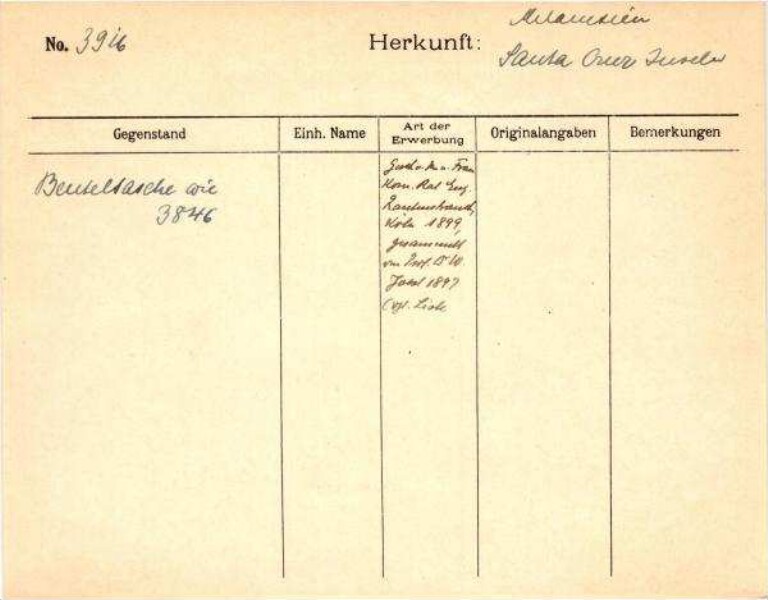 No. 3916
Herkunft: Melanesien
Santa Cruz Inseln
Gegenstand
Einh. Name
Art der Erwerbung
Originalangaben
Bemerkungen
Beuteltasche wie
3846
Gesch. v. H. u. Frau
Kom. Rat Eug.
Rautenstrauch,
Köln 1899,
gesammelt
von Prof. Dr W.
Joest 1897
Cvgl. Liste